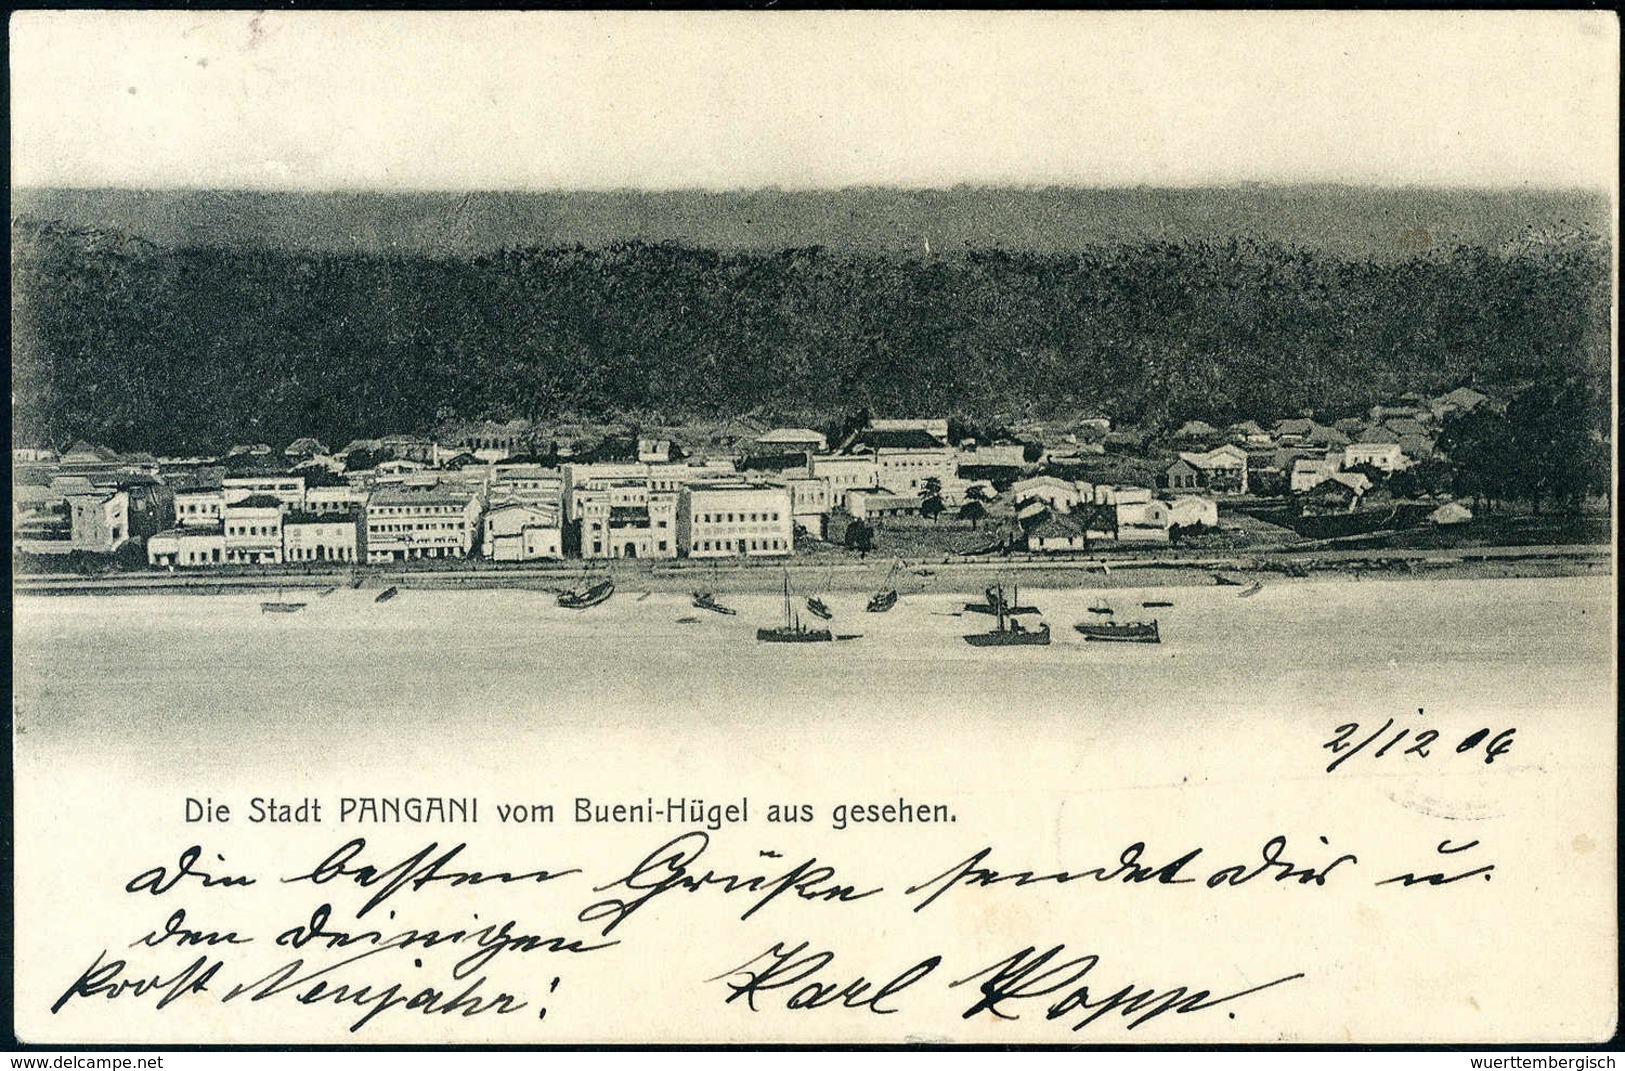 2/12 06
Die Stadt PANGANI vom Bueni-Hügel aus gesehen.
Die besten Grüße sendet Dir u.
den Deinigen
Prost Neujahr!
Karl Kopp.
delcampe.net
wuerttembergisch